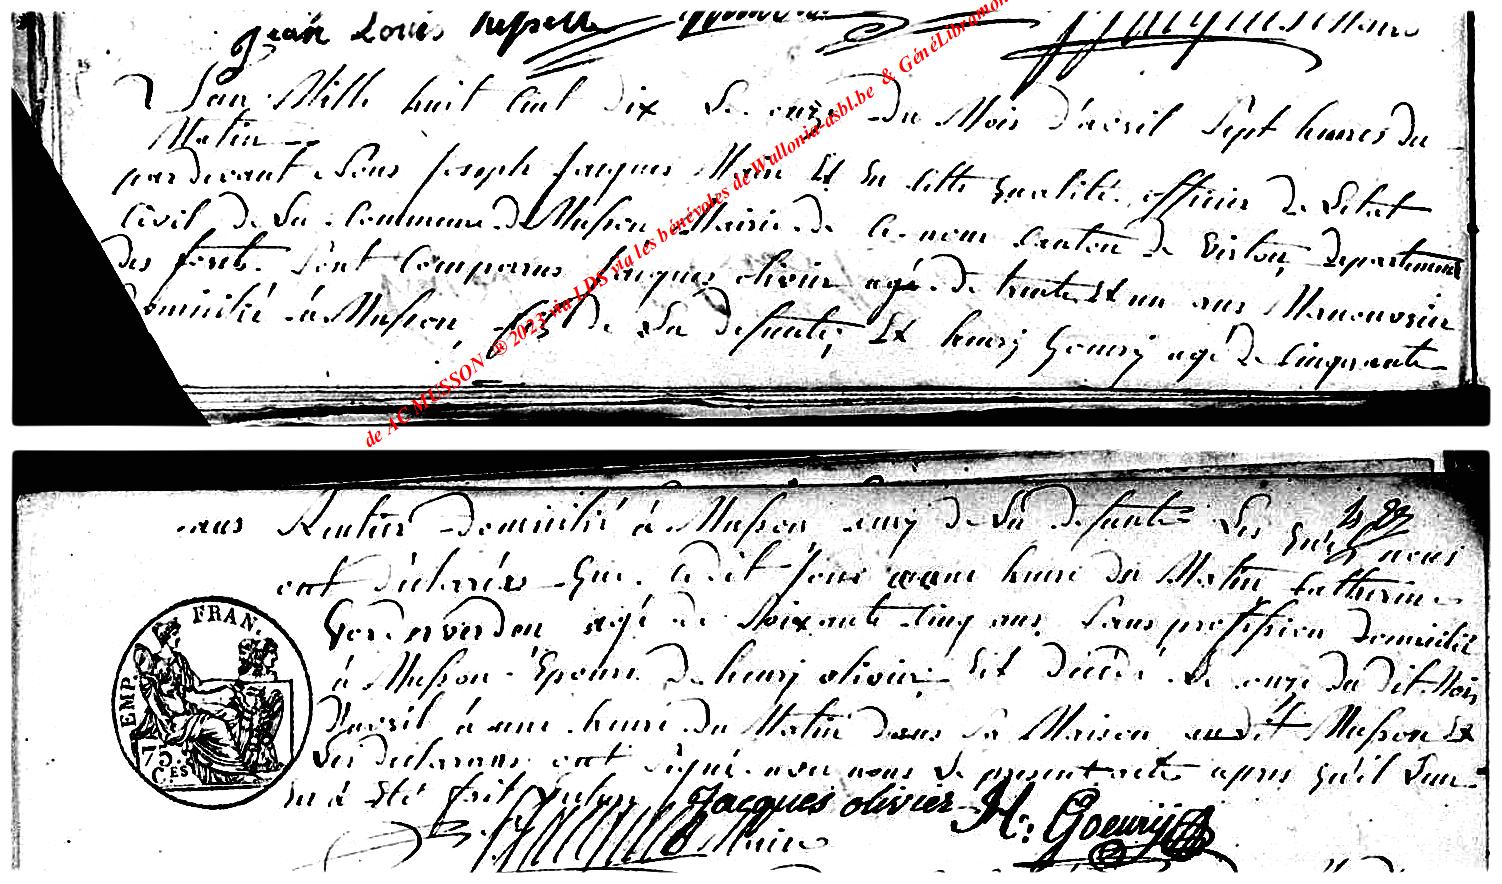 Jean Louis
L'an Mille huit Cent dix Le onze du Mois d'avril Sept heures du
Matin
pardevant Nous Joseph Jacques Maire Et En Cette qualité officier De Létat
Civil De La Commune De Musson Mairie de Ce nom Canton De Virton, Departement
des forets. Sont Comparus Jacques olivier agé De trente Et un ans Manouvrier
Domicilié à Musson, fils De La Defunte, Et henry Goeury agé De Cinquante
ans Rentier Domicilié à Musson, amy De La Defunte Les quels nous
ont Déclarés que Cedit Jour a une heure Du Matin Catherine
agé de Soixante Cinq ans, Sans profession Domicilié
à Musson Epouse De henry olivier Est Décédé Le onze Du Dit Mois
D'avril à une heure Du Matin Dans Sa Maison audit Musson Et
Les Declarans ont Signé avec nous Le present acte apres qu'il Leur
En à Eté fait
Jacques olivier H: Goeury
Maire
EMP. FRAN.
75
C.ES
de AC MUSSON ® 2023 via LDS via les bénévoles de Wallonia-asbl.be & GénéLibramont